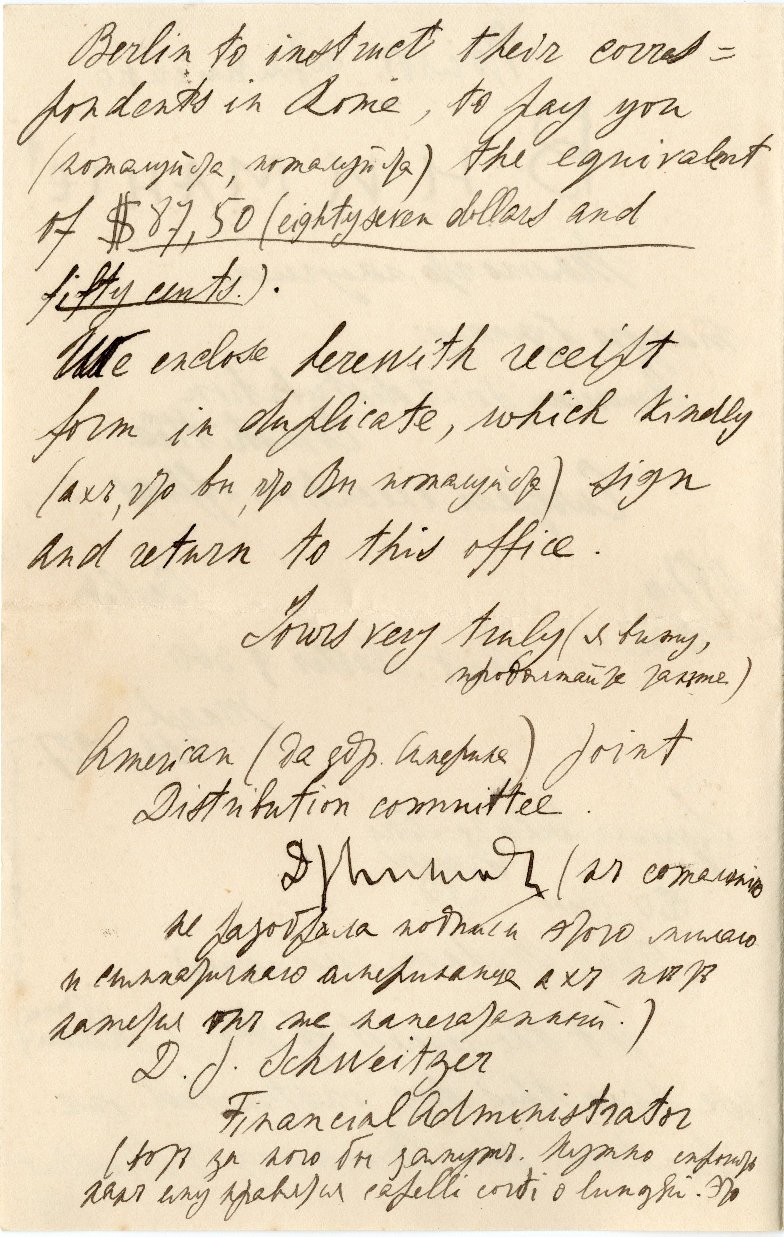 Berlin to instruct their corres=
pondents in Rome, to pay you
(пожалуйста, пожалуйста) the equivalent
of $87,50 (eighty seven dollars and
fifty cents.).
We enclose herewith receipt
form in duplicate, which kindly
(ахъ, что вы, что Вы пожалуйста) sign
and return to this office.
Yours very truly (я вижу,
продолжайте также)
American (да здр. Америка) Joint
Distribution committee.
(къ сожалѣнію
не разобрала подписи этого милаго
и симпатичнаго американца ахъ нѣтъ
же напечатанный.)
D. J. Schweitzer
Financial Administrator
(вотъ за кого бы замужъ. Нужно спросить
какъ ему нравятся capelli corti o lunghi. Это